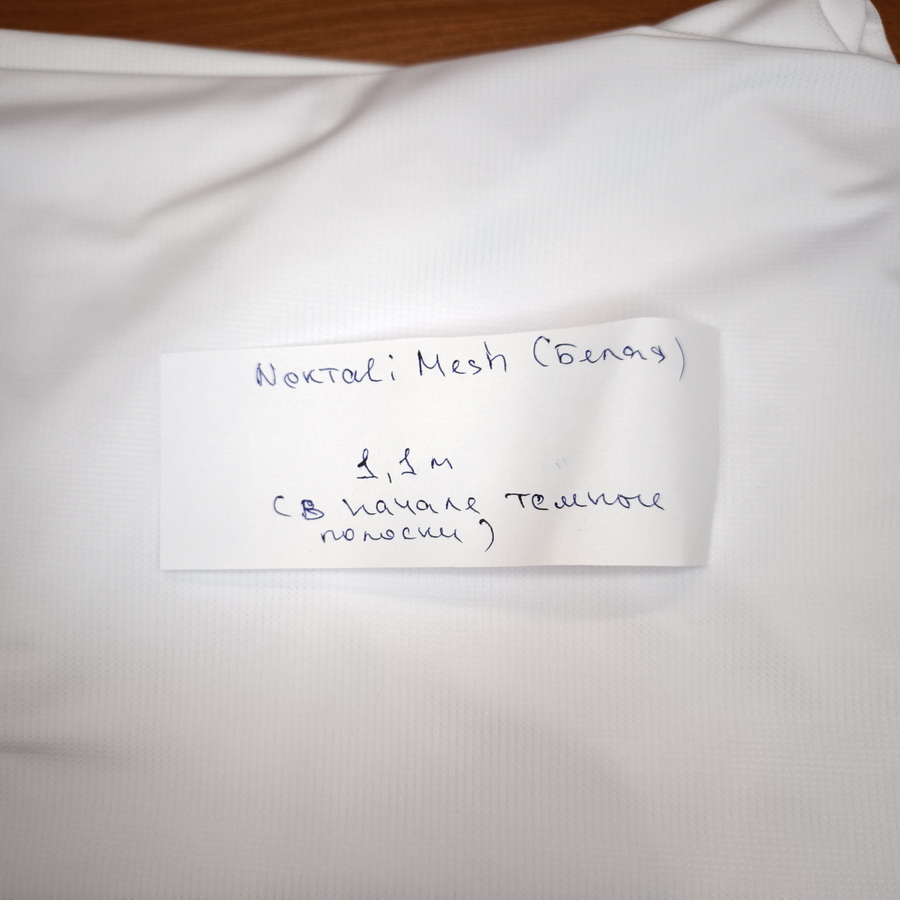 Noктali Mesh (Белая)
1,1 м
(в начале темные
полоски)